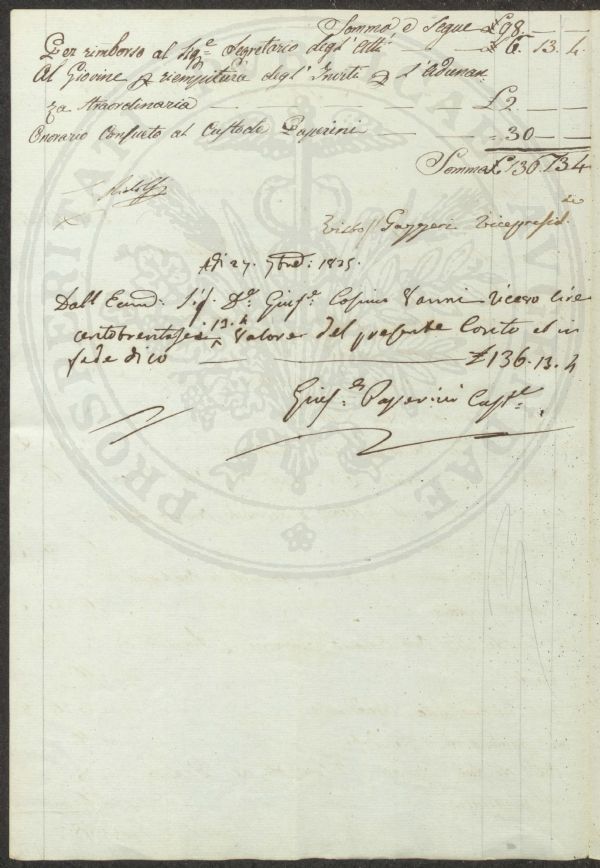 Somma, e Segue £ 98. — —
Per rimborso al Sig.e Segretario degl'Atti — £ 6. 13. 4.
Al Giovine p riempitura degl'Inviti p l'Adunan-
za Straordinaria — — — — £ 2. — —
Onorario Consueto al Custode Paperini — — = 30 — —
Somma £ 136. 13. 4
Visto Gazzeri Vicepresid.te
Adi 27. 7bre: 1825.
Dall Ecmo: Sig. D.e Giusp.e Cosimo Vanni ricevo lire
centotrentasei 13. 4 Valore del presente Conto ed in
fede dico — — £ 136. 13. 4
Giusp.e Paperini Cust.e
PROSPERITATI AUGENDAE